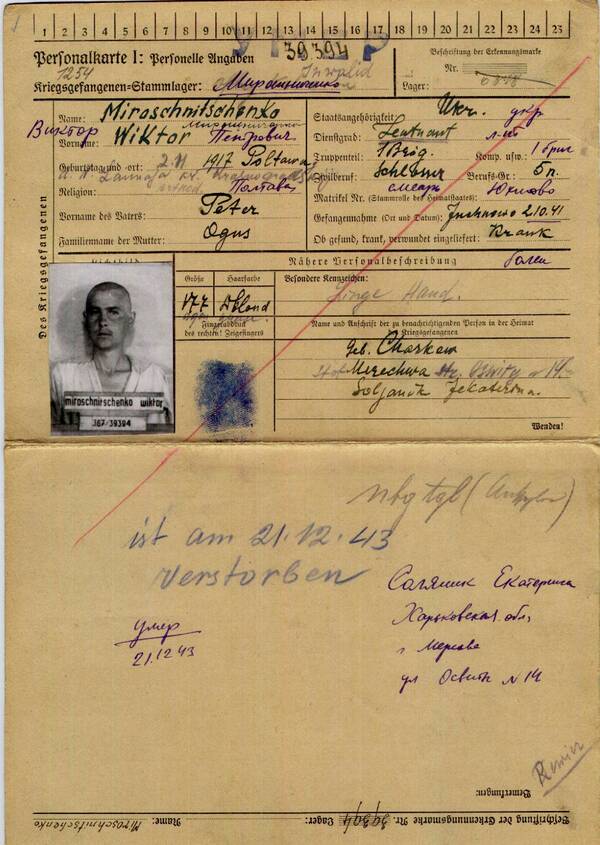 1 2 3 4 5 6 7 8 9 10 11 12 13 14 15 16 17 18 19 20 21 22 23 24 25
39394
Personalkarte I: Personelle Angaben
Beschriftung der Erkennungsmarke
1254
Invalid
Nr.
Kriegsgefangenen-Stammlager: Мирошниченко
Lager:
Des Kriegsgefangenen
Name: Miroschnitschenko
Staatsangehörigkeit: Ukr. укр
Виктор
Vorname: Wiktor Петрович
Dienstgrad: Leutnant л-нт
Geburtstag und -ort: 1917 Poltawa
Truppenteil: 1 Brig. Komp. usw.: 1 бриг
Полтава
Zivilberuf: Schlosser Berufs-Gr.: 5 п.
слесарь
Religion:
Matrikel Nr. (Stammrolle des Heimatstaates) Юхново
Vorname des Vaters: Peter
Gefangennahme (Ort und Datum): Juchnowo 2.10.41
Familienname der Mutter: Ogus
Ob gesund, krank, verwundet eingeliefert: Krank
Lichtbild
Nähere Personalbeschreibung
болен
Größe
Haarfarbe
Besondere Kennzeichen:
177
Dblond
Hand.
Fingerabdruck
des rechten! Zeigefingers
Name und Anschrift der zu benachrichtigenden Person in der Heimat
des Kriegsgefangenen
Geb. Charkow
Merechwa str. Oswity № 14
Soljanik Jekaterina.
miroschnitschenko wiktor
367/39394
Wenden!
ist am 21.12.43
verstorben
умер
21.12.43
Саляник Екатерина
Харьковская обл.
г Мерефа
ул Освиты № 14
Revier
Bemerkungen:
Beschriftung der Erkennungsmarke Nr. 39394 Lager:
Name: Miroschnitschenko